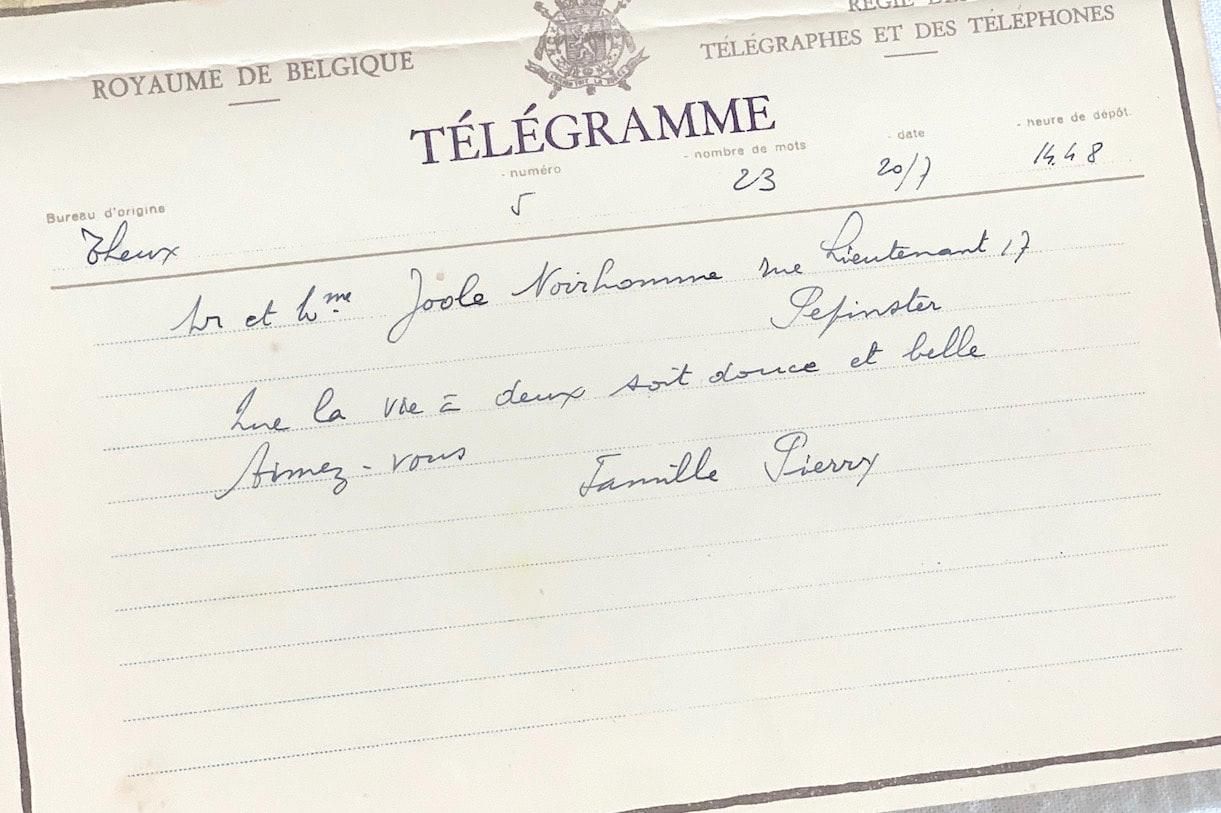 ROYAUME DE BELGIQUE
RÉGIE DES
TÉLÉGRAPHES ET DES TÉLÉPHONES
TÉLÉGRAMME
Bureau d'origine - numéro - nombre de mots - date - heure de dépôt.
Theux 5 23 20/7 14.48
Mr et Mme Joole Noirhomme rue Lieutenant 17
Pepinster
Que la vie à deux soit douce et belle
Aimez-vous Famille Pierry